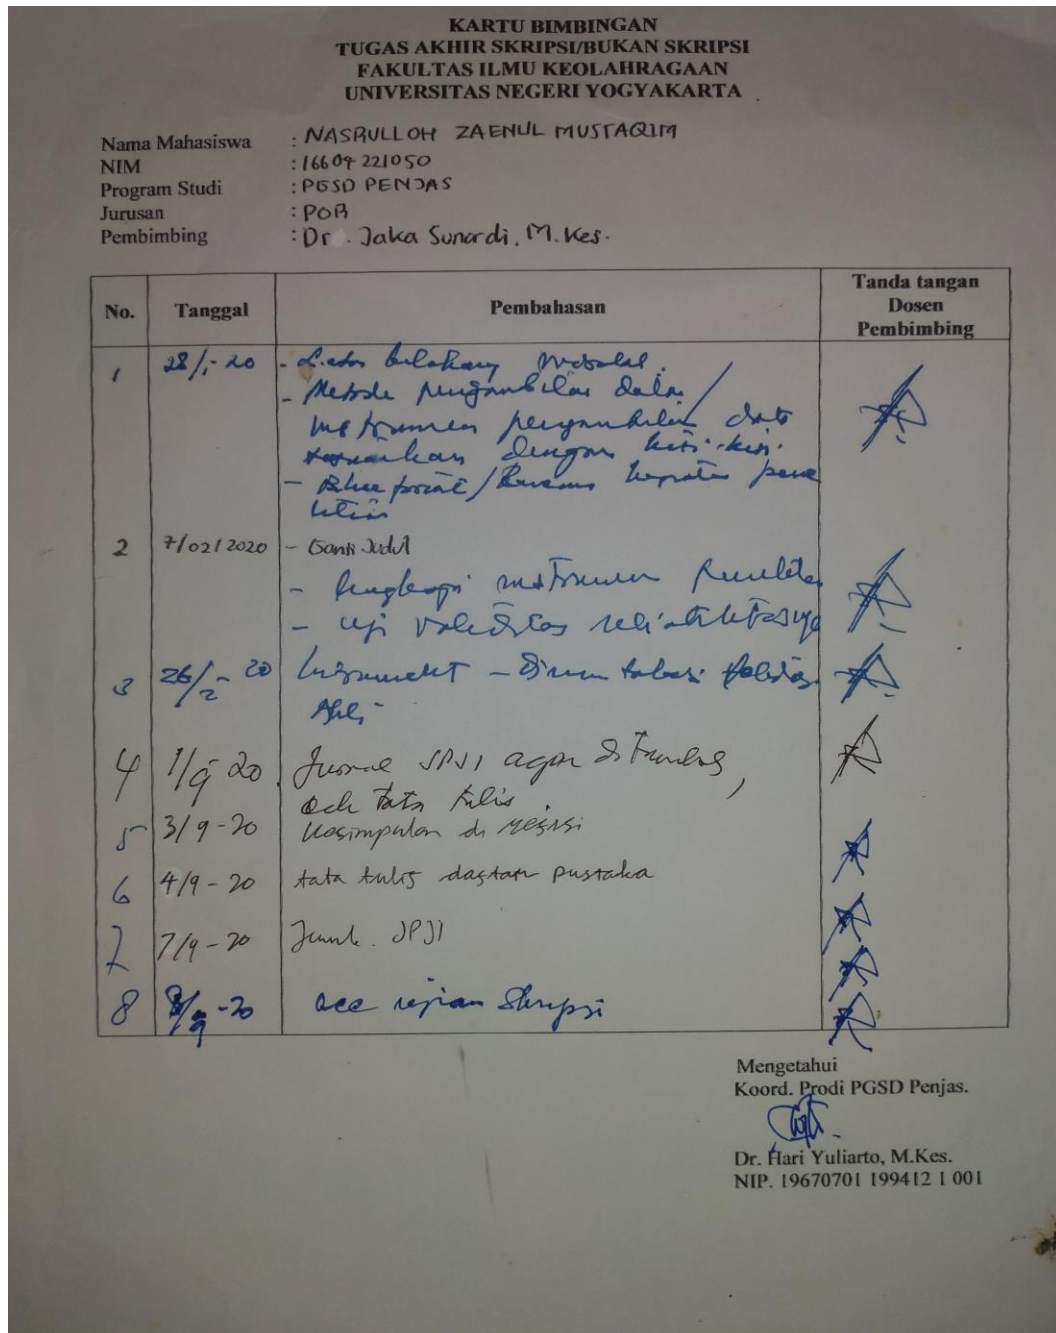 KARTU BIMBINGAN
TUGAS AKHIR SKRIPSI/BUKAN SKRIPSI
FAKULTAS ILMU KEOLAHRAGAAN
UNIVERSITAS NEGERI YOGYAKARTA
Nama Mahasiswa : NASRULLOH ZAENUL MUSTAQIM
NIM : 16604221050
Program Studi : PGSD PENJAS
Jurusan : POR
Pembimbing : Dr. Jaka Sunardi, M.Kes.
No. Tanggal Pembahasan Tanda tangan Dosen Pembimbing
1 28/1-20 - Latar belakang masalah.
- Metode pengambilan data/
instrumen pengambilan data
dengan kisi-kisi.
- Blue print/Rencana kegiatan pene
litian
2 7/02/2020 - Ganti Judul
- lengkapi instrumen
- uji validitas reliabilitasnya
3 26/2-20
Ahli
4 1/9 20 JPJI agar
tata tulis.
5 3/9-20 Kesimpulan di
6 4/9-20 tata tulis daftar pustaka
7 7/9-20 JPJI
8 8/9-20 acc ujian Skripsi
Mengetahui
Koord. Prodi PGSD Penjas.
Dr. Hari Yuliarto, M.Kes.
NIP. 19670701 199412 1 001